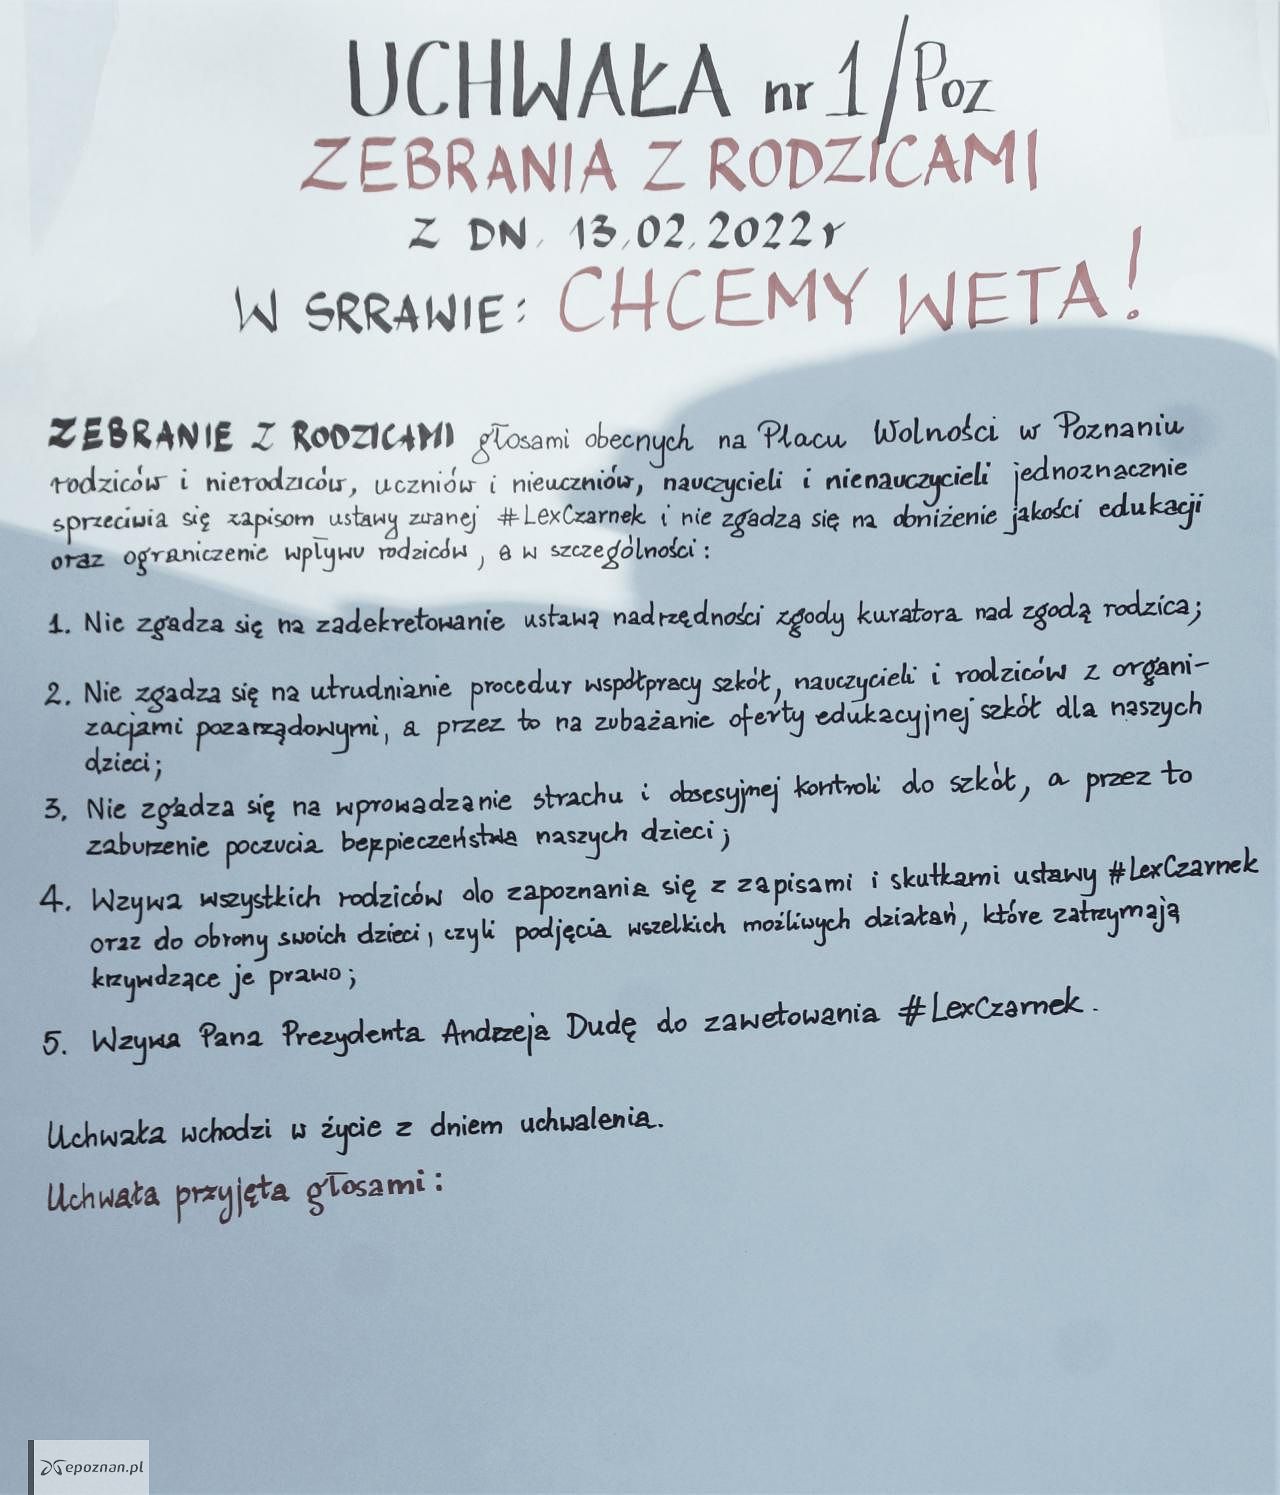 UCHWAŁA nr 1/Poz
ZEBRANIA Z RODZICAMI
Z DN. 13.02.2022r
W SRRAWIE: CHCEMY WETA!
ZEBRANIE Z RODZICAMI głosami obecnych na Placu Wolności w Poznaniu
rodziców i nierodziców, uczniów i nieuczniów, nauczycieli i nienauczycieli jednoznacznie
sprzeciwia się zapisom ustawy zwanej #LexCzarnek i nie zgadza się na obniżenie jakości edukacji
oraz ograniczenie wpływu rodziców, a w szczególności:
1. Nie zgadza się na zadekretowanie ustawą nadrzędności zgody kuratora nad zgodą rodzica;
2. Nie zgadza się na utrudnianie procedur współpracy szkół, nauczycieli i rodziców z organi-
zacjami pozarządowymi, a przez to na zubażanie oferty edukacyjnej szkół dla naszych
dzieci;
3. Nie zgadza się na wprowadzanie strachu i obsesyjnej kontroli do szkół, a przez to
zaburzenie poczucia bezpieczeństwa naszych dzieci;
4. Wzywa wszystkich rodziców do zapoznania się z zapisami i skutkami ustawy #LexCzarnek
oraz do obrony swoich dzieci, czyli podjęcia wszelkich możliwych działań, które zatrzymają
krzywdzące je prawo;
5. Wzywa Pana Prezydenta Andrzeja Dudę do zawetowania #LexCzarnek.
Uchwała wchodzi w życie z dniem uchwalenia.
Uchwała przyjęta głosami:
epoznan.pl